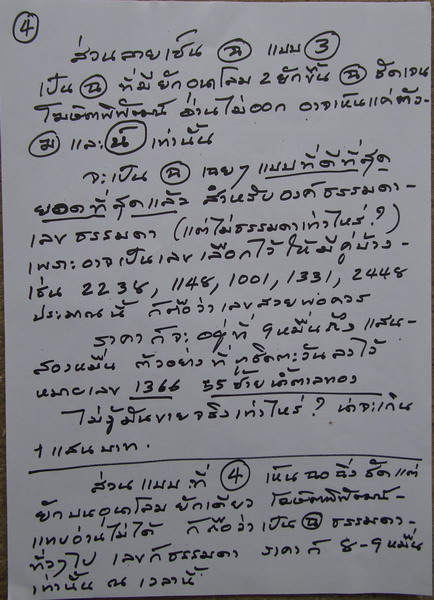 ④
ส่วนลายเซ็น ฉ แบบ 3
เป็น ฉ ที่มียักอนุโลม 2 ยักขึ้น ฉ ชัดเจน
โฆษิตพิพัฒน์ อ่านไม่ออก อาจเห็นแค่ตัว-
ฆ และ น์ เท่านั้น
จะเป็น ฉ เฉยๆ แบบที่ดีที่สุด
ยอดที่สุดแล้ว สำหรับองค์ธรรมดา-
เลขธรรมดา (แต่ไม่ธรรมดาเท่าไหร่?)
เพราะอาจเป็นเลขเลือกไว้ให้มีคู่บ้าง-
เช่น 2238, 1148, 1001, 1331, 2448
ประมาณนี้ ก็ถือว่าเลขสวยพอควร
ราคาก็จะอยู่ที่ 9หมื่นถึงแสน-
สองหมื่น ตัวอย่างที่ ชิตตะวันลงไว้
หมายเลข 1366 55 ซ้ายน้ำตาลทอง
ไม่รู้มันขายจริงเท่าไหร่? น่าจะเกิน
1 แสนบาท.
ส่วนแบบที่ 4 เห็น ฉ ชัดแต่
ยักบนอนุโลมยักเดียว โฆษิตพิพัฒน์-
แทบอ่านไม่ได้ ก็ถือว่าเป็น ฉ ธรรมดา-
ทั่วๆไป เลขก็ธรรมดา ราคาก็ 8-9 หมื่น
เท่านั้น ณ เวลานี้